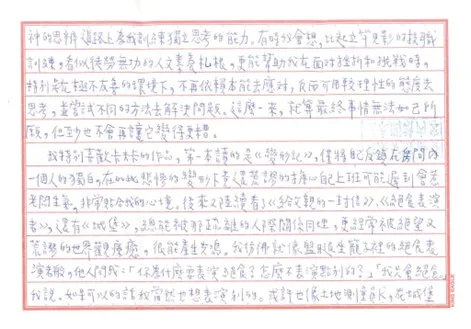 神的思辨道路上來我訓練獨立思考的能力。有時我會想，比起立竿見影的技職
訓練，看似徒勞無功的人文素養札根，更能幫助我在面對挫折和挑戰時，
特別是在極不友善的環境下，不再依賴本能去應對，反而可用較理性的態度去
思考，並嘗試不同的方法去解決問題。這麼一來，就算最終事情無法如己所
願，但至少也不會再讓它變得更糟。
我特別喜歡卡夫卡的作品，第一本讀的是《變形記》，僅將自己反鎖在房間內
一個人的獨白，在如此悲慘的變形下竟還荒謬的擔心自己上班可能遲到會惹
老闆生氣，非常貼合我的心境。後來又陸續看了《給父親的一封信》、《絕食表演
者》，還有《城堡》，總能被那疏離的人際關係同理，更經常被絕望又
荒謬的世界觀療癒，很能產生共鳴。我彷彿就像盤腿坐籠子裡的絕食表
演者般，他人問我：「你為什麼要表演絕食？怎麼不表演點別的？」「我只會絕食」
我說。如果可以的話我當然也想表演別的。或許也像土地測量員K，在城堡